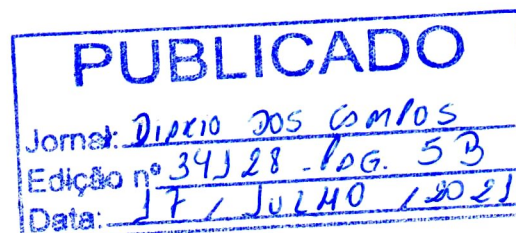 PUBLICADO
Jornal: DIÁRIO DOS CAMPOS
Edição nº 34128 - PAG. 5B
Data: 17 / JULHO / 2021